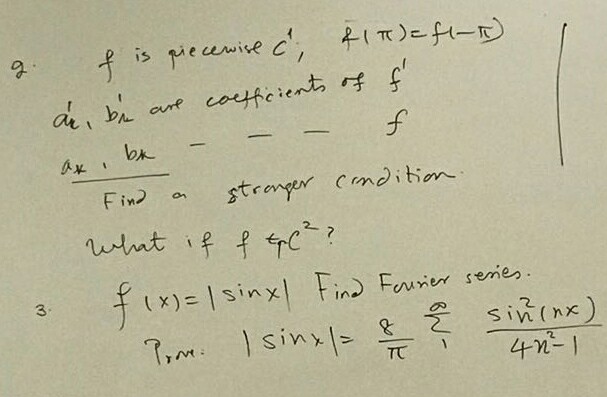 2. f is piecewise C¹, f(π)=f(-π)
a'ₖ, b'ₖ are coefficients of f'
aₖ, bₖ — — — f
Find a stronger condition.
What if f ∈ C²?
3. f(x)=|sinx| Find Fourier series.
Prove: |sinx|= 8/π ∑₁^∞ sin²(nx)/(4n²-1)